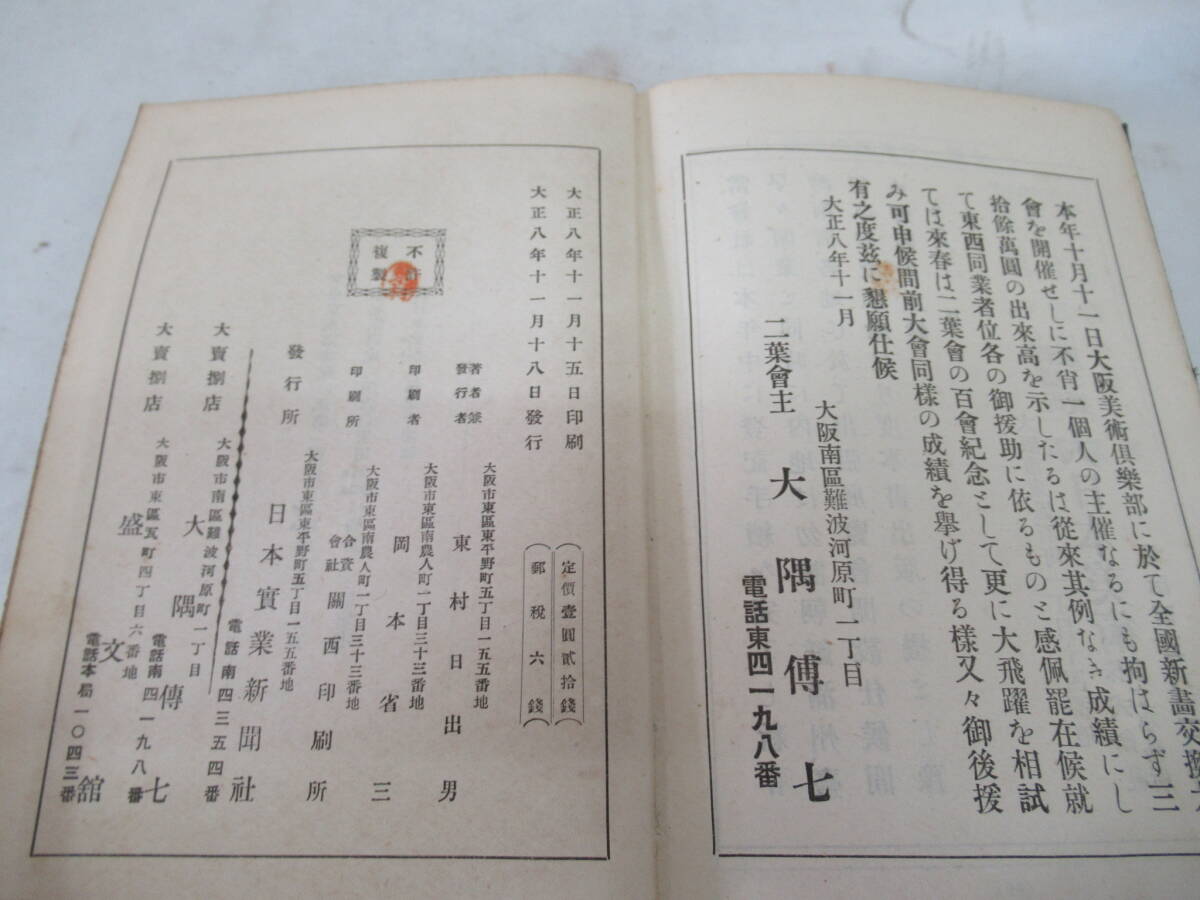 本年十月十一日大阪美術俱樂部に於て全國新畫交換大
會を開催せしに不肖一個人の主催なるにも拘はらず三
拾餘萬圓の出來高を示したるは從來其例なき成績にし
て東西同業者位各の御援助に依るものと感佩罷在候就
ては來春は二葉會の百會紀念として更に大飛躍を相試
み可申候間前大會同樣の成績を擧げ得る樣又々御後援
有之度玆に懇願仕候
大正八年十一月
大阪南區難波河原町一丁目
二葉會主 大隅傳七
電話東四一九八番
大正八年十一月十五日印刷
大正八年十一月十八日發行
定價壹圓貳拾錢
郵稅六錢
不許
複製
大阪市東區東平野町五丁目一五五番地
著者兼
發行者 東村日出男
大阪市東區南農人町一丁目三十三番地
印刷者 岡本省三
大阪市東區南農人町一丁目三十三番地
印刷所 合資
會社 關西印刷所
大阪市東區東平野町五丁目一五五番地
發行所 日本實業新聞社
電話南四三五四番
大阪市南區難波河原町一丁目
大賣捌店 大隅傳七
電話南四一九八番
大阪市東區瓦町四丁目六番地
大賣捌店 盛文館
電話本局一〇四三番